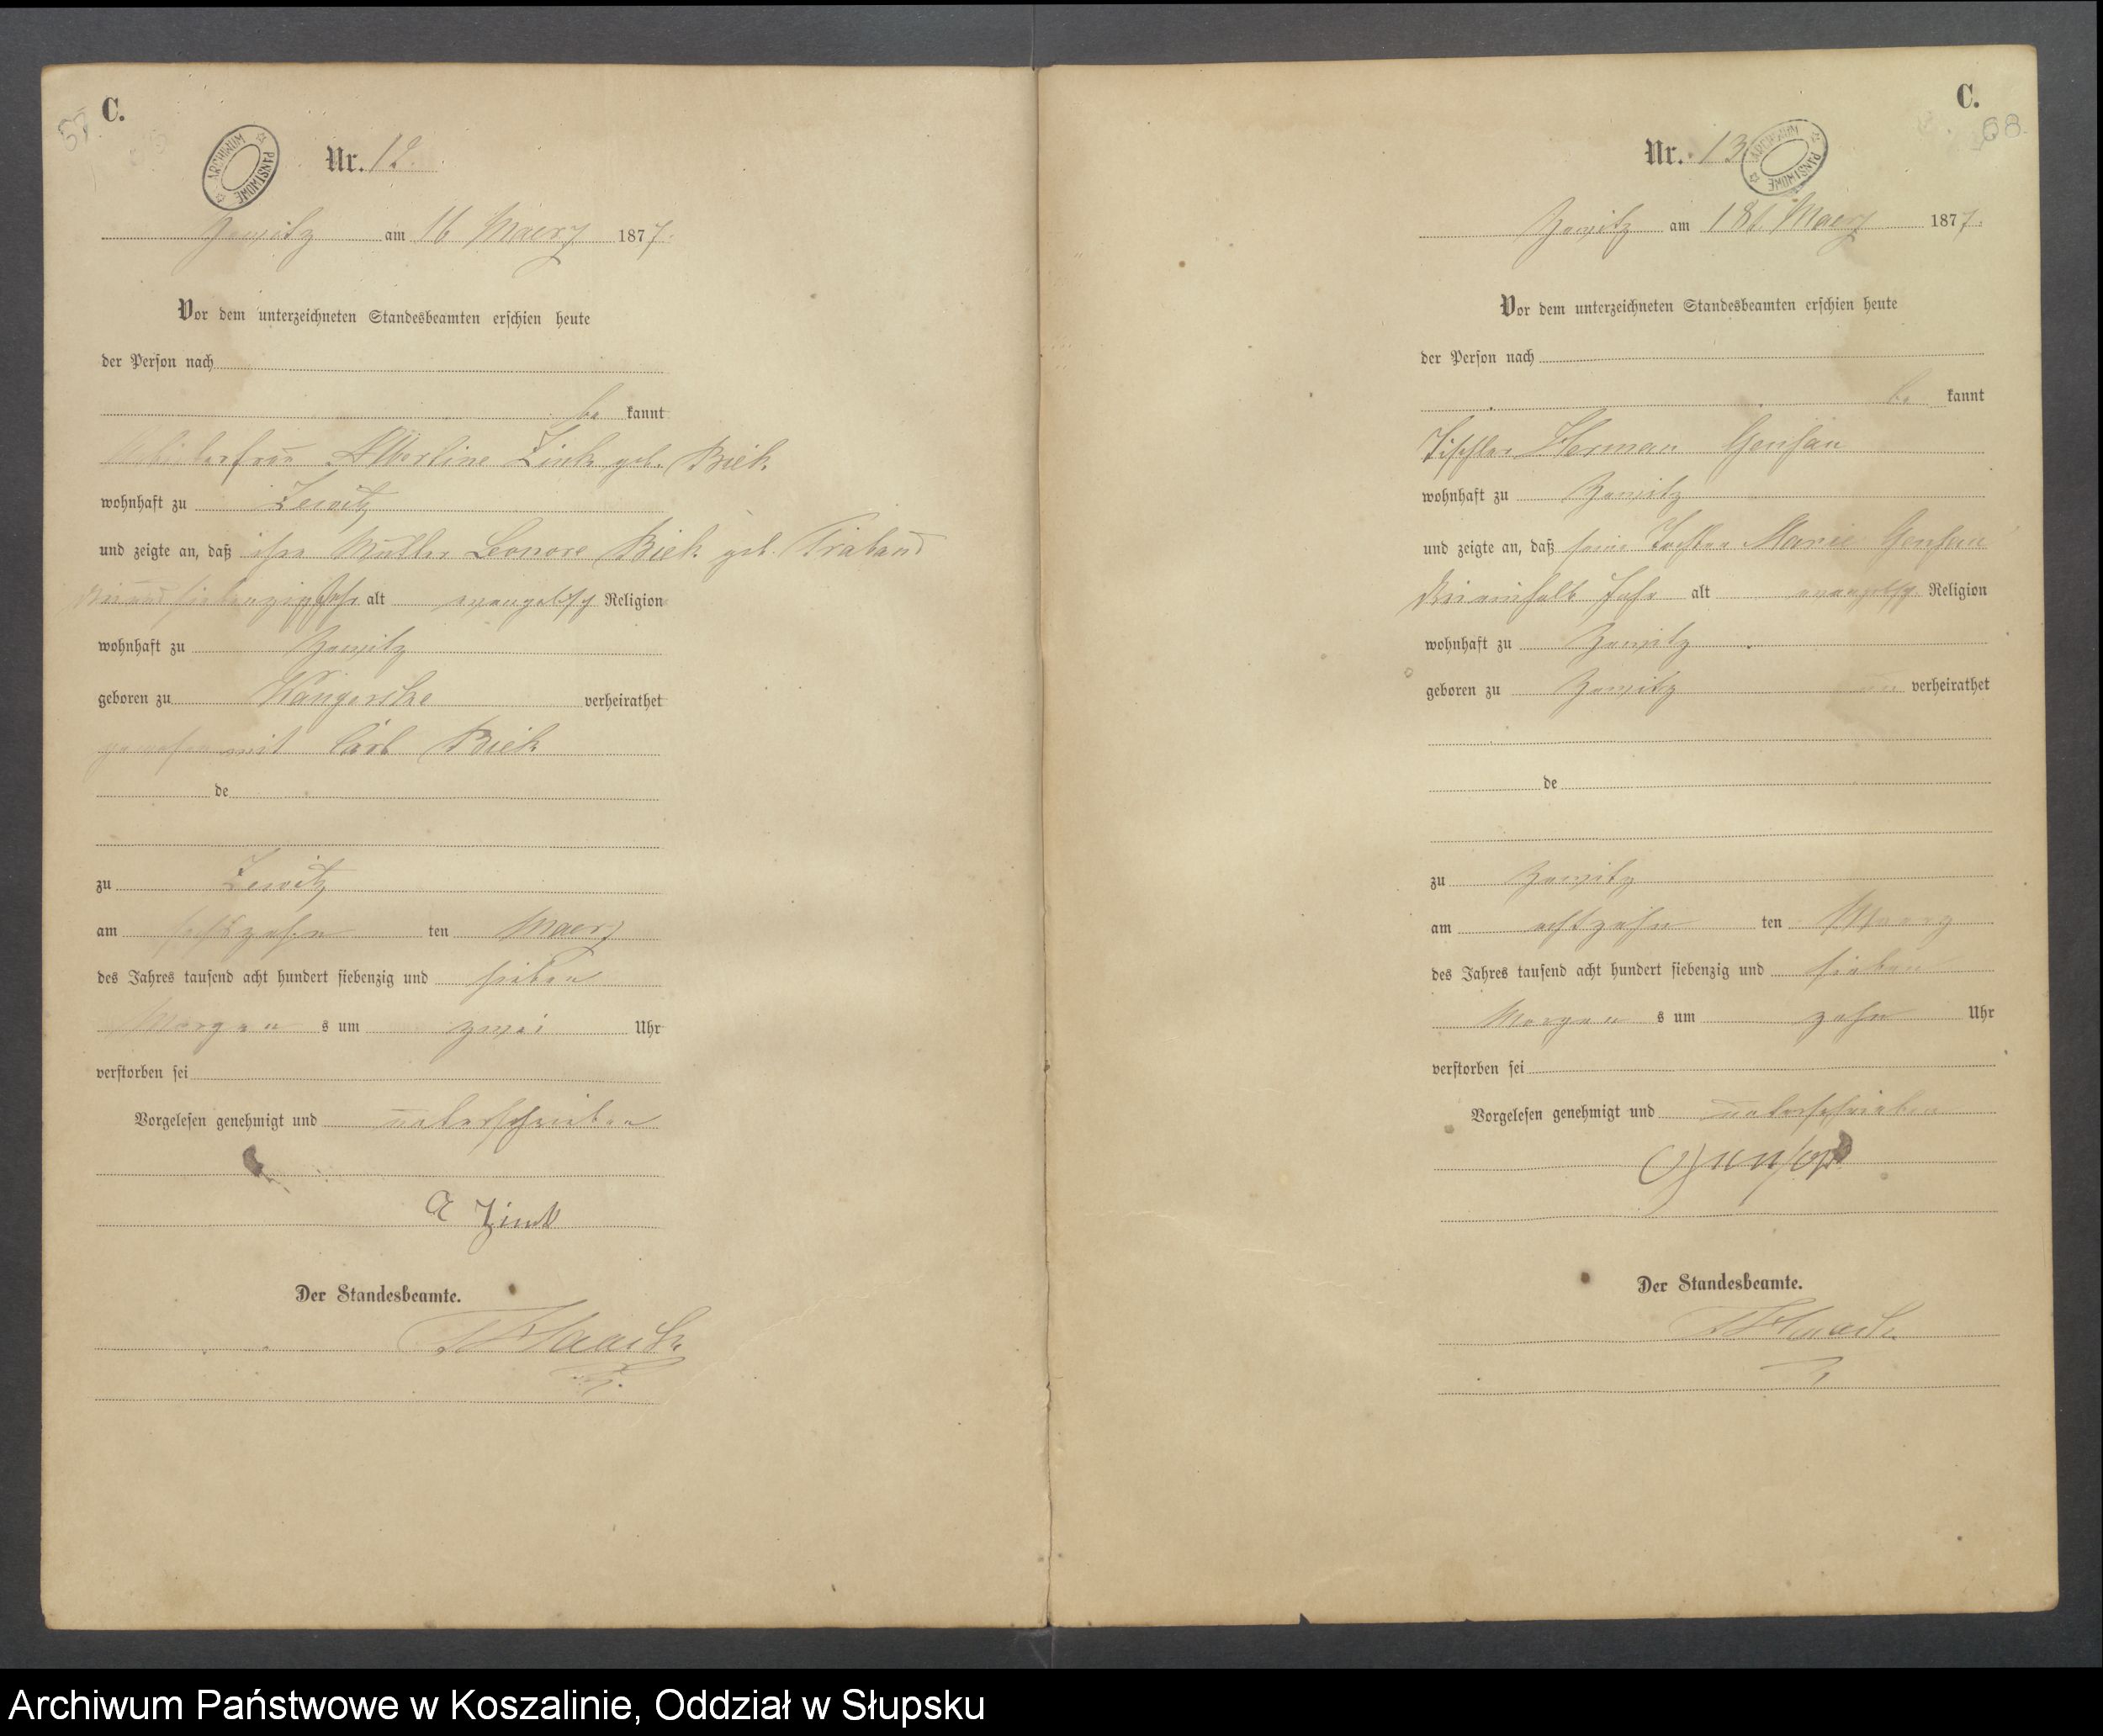 C.
57
Nr. 12.
ARCHIWUM PAŃSTWOWE
Zewitz am 16 Maerz 1877.
Vor dem unterzeichneten Standesbeamten erschien heute
der Person nach
be kannt
Albertine Zink geb. Biek
wohnhaft zu Zewitz
und zeigte an, daß ihre Mutter Leonore Biek geb. Traband
siebenzig Jahr alt evangelisch Religion
wohnhaft zu Zewitz
geboren zu verheirathet
gewesen mit Carl Biek
de
zu Zewitz
am sechszehn ten Maerz
des Jahres tausend acht hundert siebenzig und sieben
Morgen s um zwei Uhr
verstorben sei
Vorgelesen genehmigt und unterschrieben
A Zink
Der Standesbeamte.
Haack
C.
68.
Nr. 13
ARCHIWUM PAŃSTWOWE
Zewitz am 18t. Maerz 1877.
Vor dem unterzeichneten Standesbeamten erschien heute
der Person nach
be kannt
Tischler Herman Genhan
wohnhaft zu Zewitz
und zeigte an, daß seine Tochter Marie Genhan
Jahr alt evangelisch Religion
wohnhaft zu Zewitz
geboren zu Zewitz un verheirathet
de
zu Zewitz
am achtzehn ten Maerz
des Jahres tausend acht hundert siebenzig und sieben
Morgen s um zehn Uhr
verstorben sei
Vorgelesen genehmigt und unterschrieben
Der Standesbeamte.
Haack
Archiwum Państwowe w Koszalinie, Oddział w Słupsku